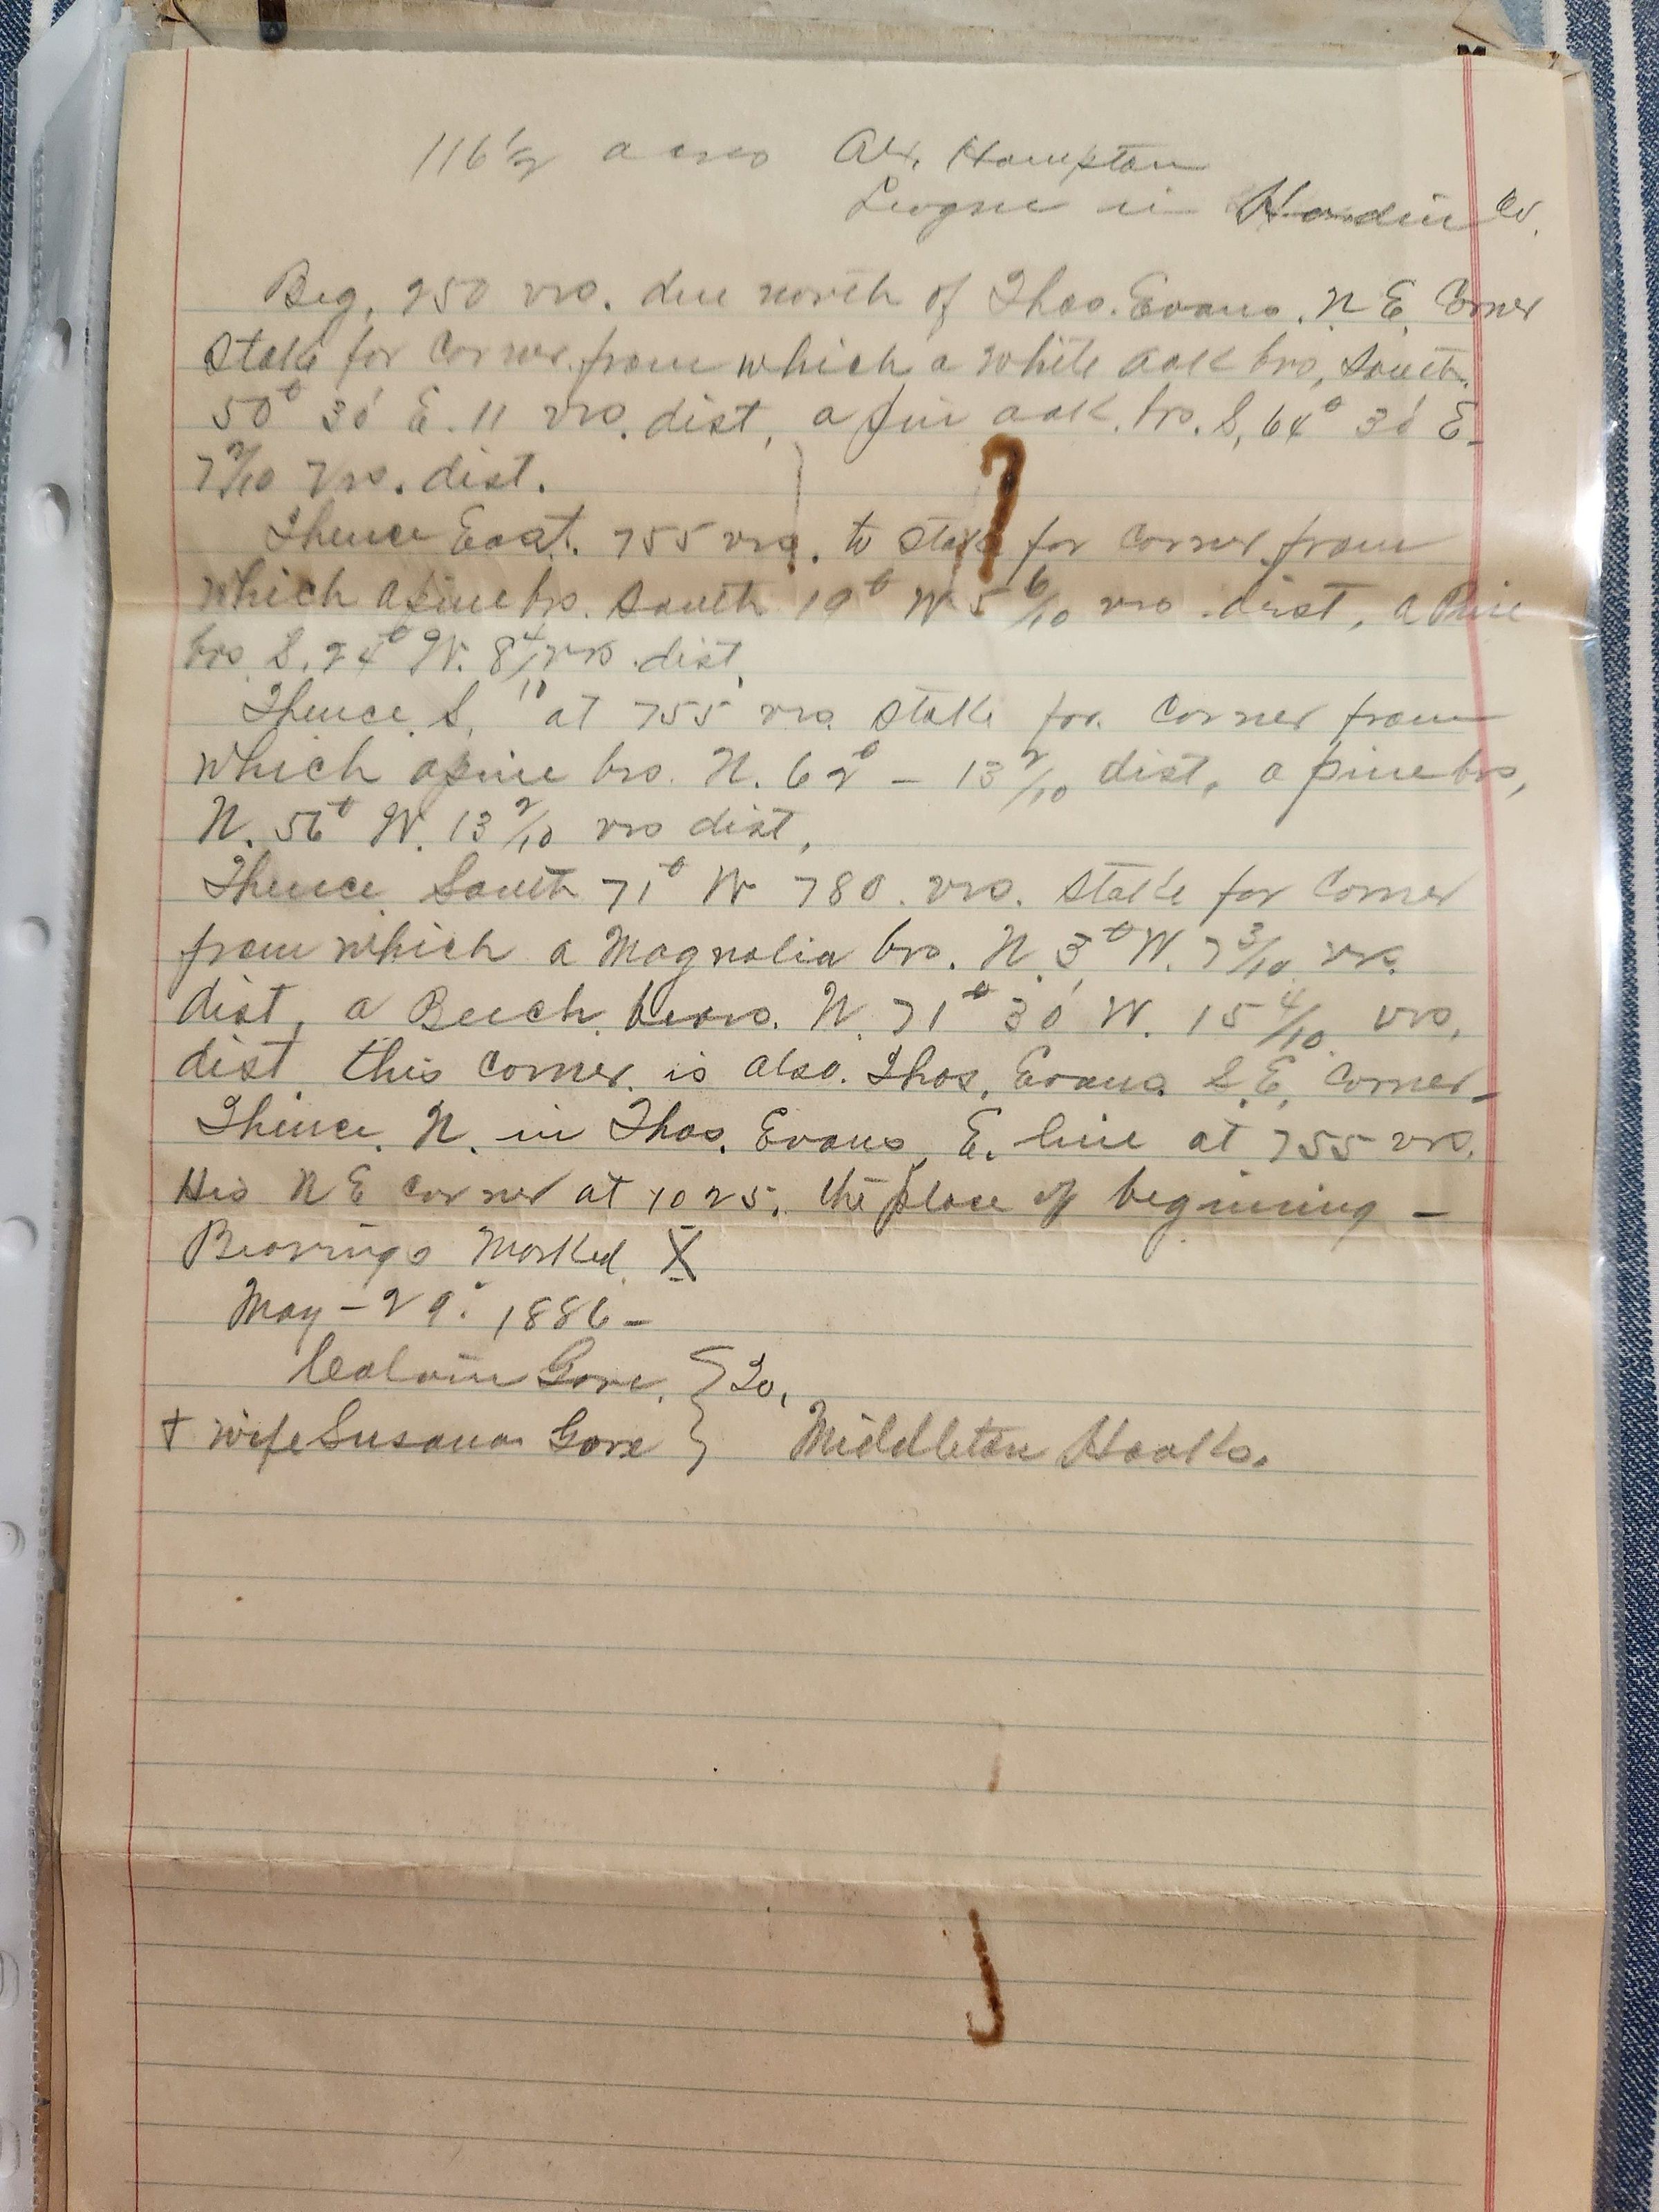 116 1/2 acres Alex. Hampton
League in Hardin Co.
Beg, 250 vrs. due north of Thos. Evans. N. E. Corner
Stake for Corner. from which a White oak brs, South.
50° 30' E. 11 vrs. dist, a pin oak. brs. S, 64° 30' E-
7 2/10 vrs. dist.
Thence East. 755 vrs. to stake for corner. from
which a pine brs. South 19° W 5 6/10 vrs. dist, a Pine
brs. S. 24° W. 8 4/10 vrs. dist,
Thence. S, at 755 vrs. Stake for. Corner from
which a pine brs. N. 62° - 13 2/10 dist, a pine brs,
N. 56° W. 13 2/10 vrs dist,
Thence South 71° W 780. vrs. stake for Corner
from which a Magnolia brs. N. 3° W. 7 3/10 vrs.
dist, a Beech. bears. N. 71° 30' W. 15 4/10 vrs,
dist. this Corner. is also. Thos, Evans. S.E, Corner-
Thince. N. in Thos. Evans, E. line at 755 vrs.
His N E Corner at 1025, the place of beginning -
Bearings Marked. X
May - 29. 1886 -
Calvin Gore. } To,
+ wife Susana Gore } Middleton Hooks.